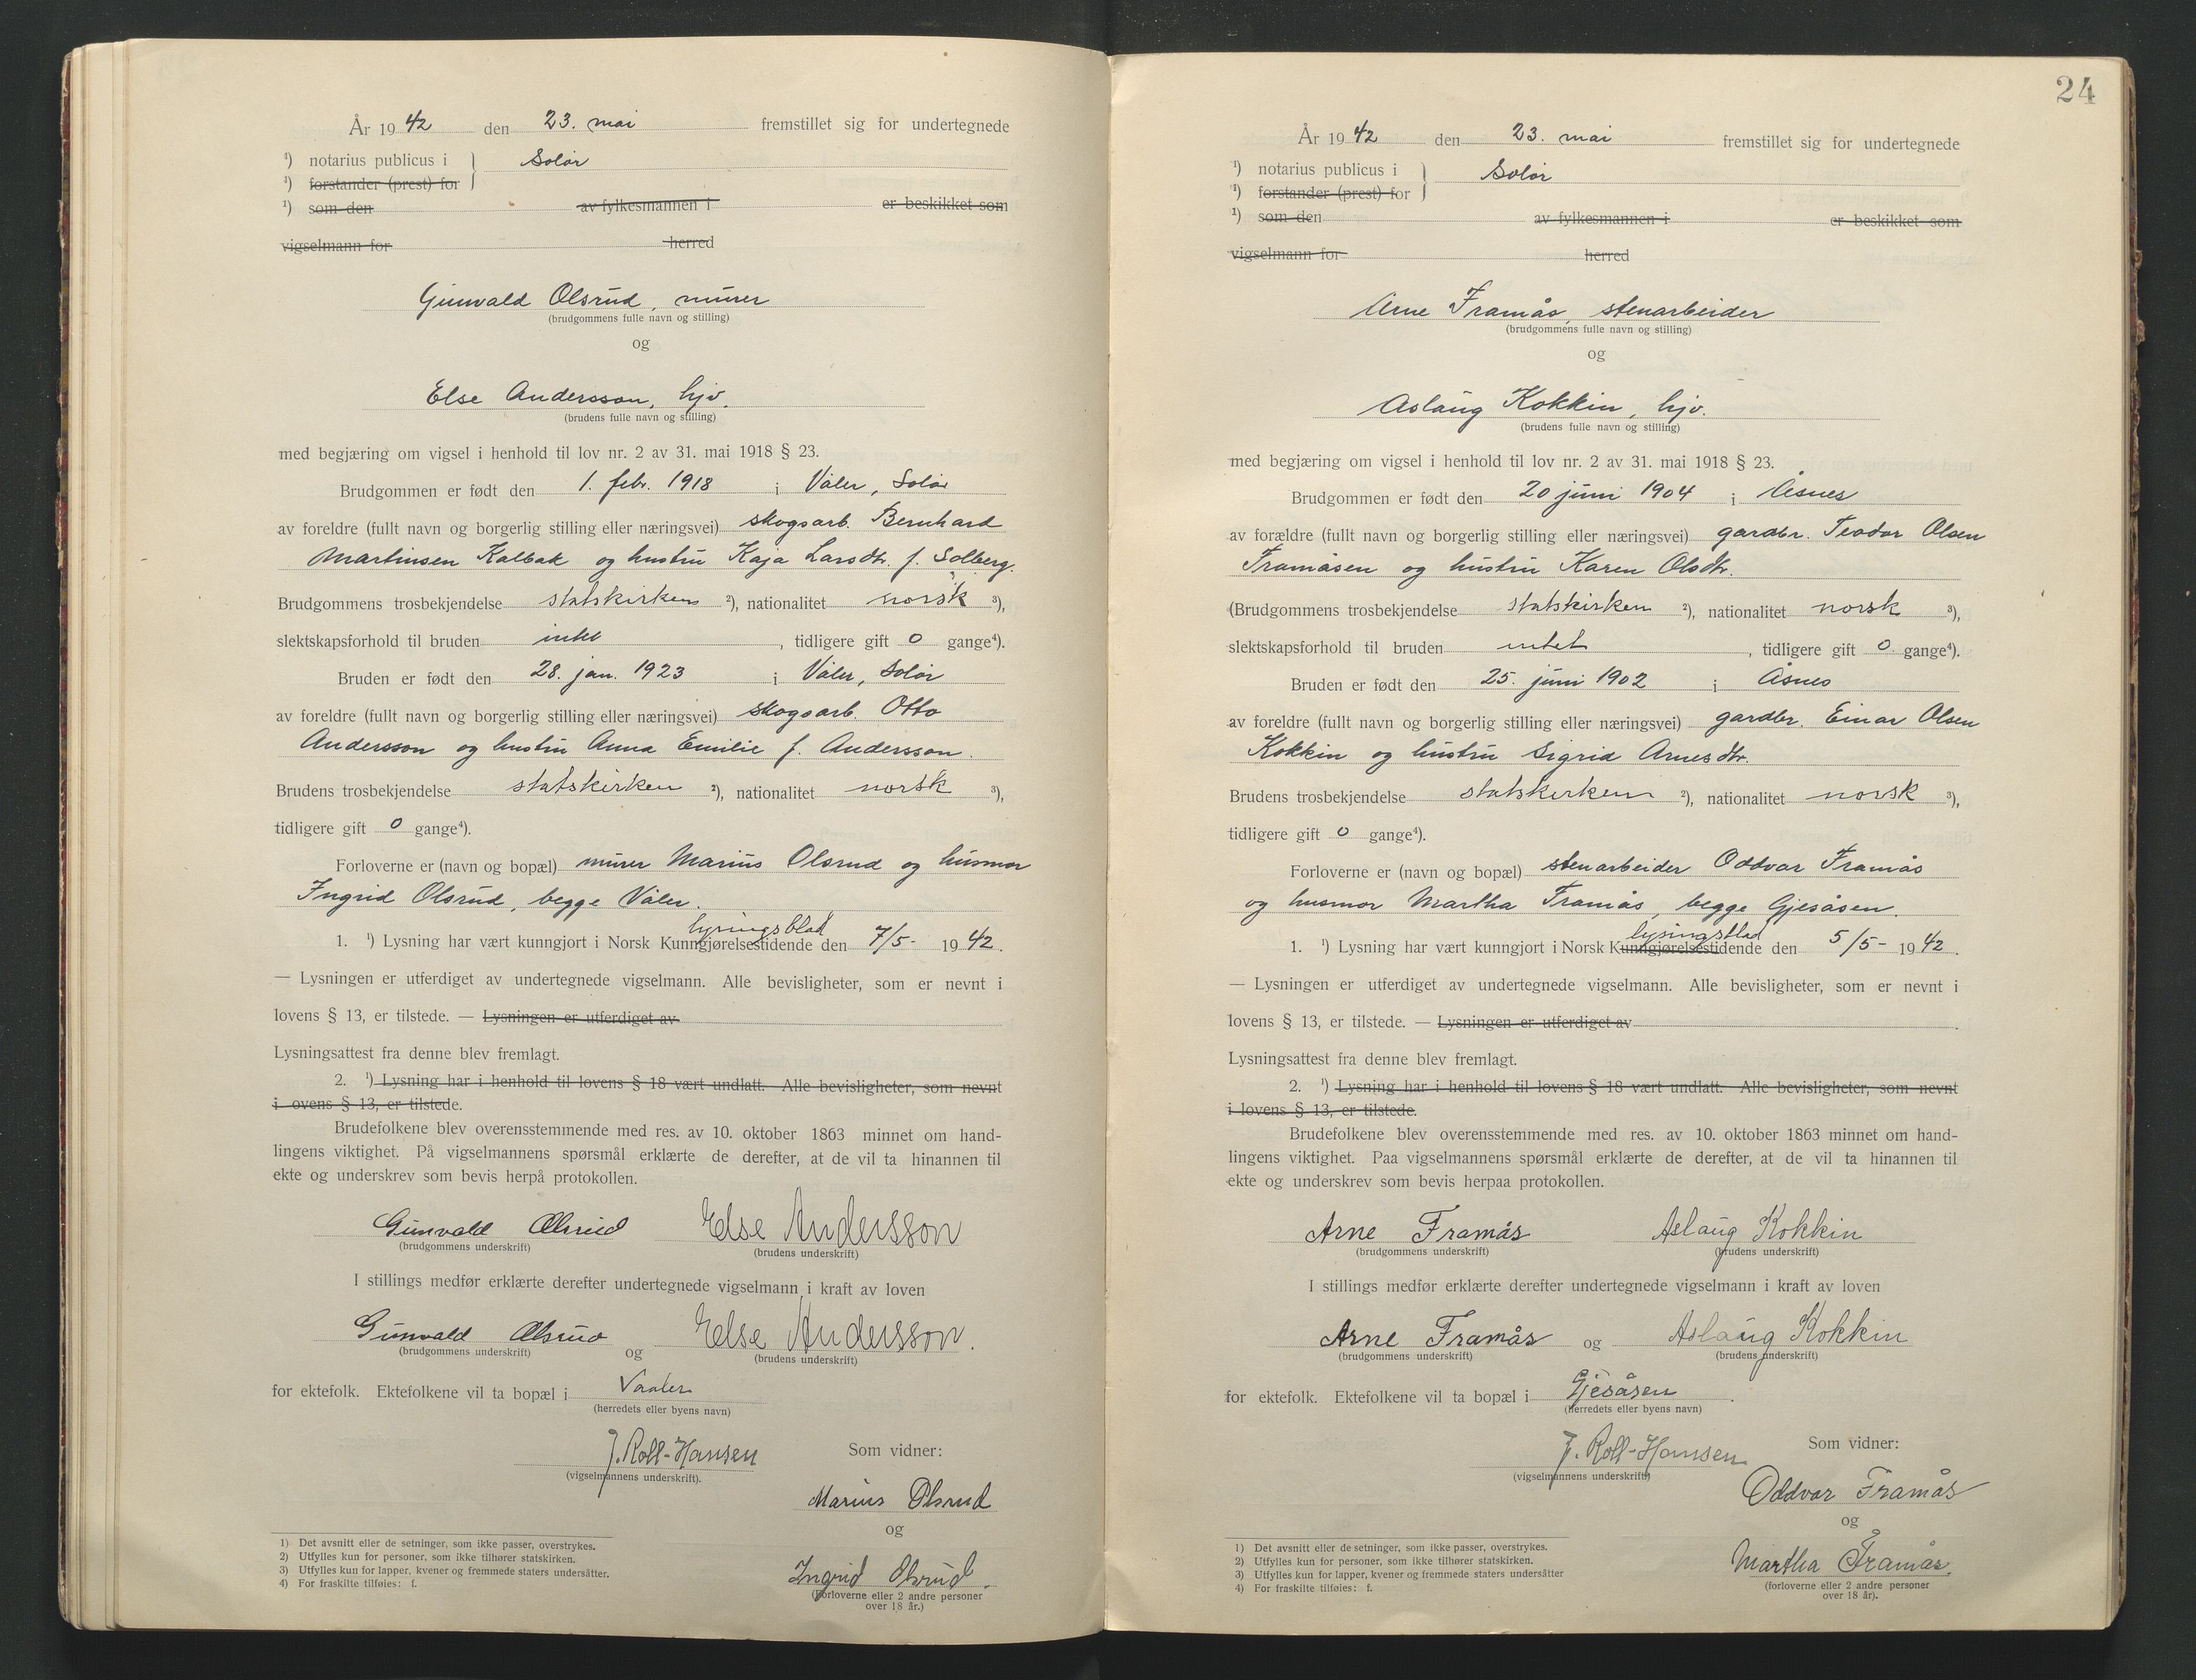 År 1942 den 23. mai fremstillet sig for undertegnede
¹) notarius publicus i } Solør
¹) forstander (prest) for
¹) som den av fylkesmannen i er beskikket som
vigselmann for herred
Gunvald Olsrud, murer
(brudgommens fulle navn og stilling)
og
Else Andersson, hjv.
(brudens fulle navn og stilling)
med begjæring om vigsel i henhold til lov nr. 2 av 31. mai 1918 § 23.
Brudgommen er født den 1. febr. 1918 i Våler, Solør
av foreldre (fullt navn og borgerlig stilling eller næringsvei) skogsarb. Bernhard
Martinsen Kalbak og hustru Kaja Larsdtr. f. Solberg.
Brudgommens trosbekjendelse statskirken ²), nationalitet norsk ³),
slektskapsforhold til bruden intet, tidligere gift 0 gange⁴).
Bruden er født den 28. jan. 1923 i Våler, Solør
av foreldre (fullt navn og borgerlig stilling eller næringsvei) skogsarb. Otto
Andersson og hustru Anna Emilie f. Andersson.
Brudens trosbekjendelse statskirken ²), nationalitet norsk ³),
tidligere gift 0 gange⁴).
Forloverne er (navn og bopæl) murer Marius Olsrud og husmor
Ingrid Olsrud, begge Våler.
lysingsblad
1. ¹) Lysning har vært kunngjort i Norsk Kunngjørelsestidende den 7/5- 1942.
— Lysningen er utferdiget av undertegnede vigselmann. Alle bevisligheter, som er nevnt i
lovens § 13, er tilstede. — Lysningen er utferdiget av
Lysningsattest fra denne blev fremlagt.
2. ¹) Lysning har i henhold til lovens § 18 vært undlatt. Alle bevisligheter, som nevnt
i ovens § 13, er tilstede.
Brudefolkene blev overensstemmende med res. av 10. oktober 1863 minnet om hand-
lingens viktighet. På vigselmannens spørsmål erklærte de derefter, at de vil ta hinannen til
ekte og underskrev som bevis herpå protokollen.
Gunvald Olsrud Else Andersson
(brudgommens underskrift) (brudens underskrift)
I stillings medfør erklærte derefter undertegnede vigselmann i kraft av loven
Gunvald Olsrud og Else Andersson.
(brudgommens underskrift) (brudens underskrift)
for ektefolk. Ektefolkene vil ta bopæl i Vaaler
(herredets eller byens navn)
J. Roll-Hansen Som vidner:
(vigselmannens underskrift).
Marius Olsrud
og
Ingrid Olsrud.
(Forloverne eller 2 andre personer
over 18 år.)
1) Det avsnitt eller de setninger, som ikke passer, overstrykes.
2) Utfylles kun for personer, som ikke tilhører statskirken.
3) Utfylles kun for lapper, kvener og fremmede staters undersåtter.
4) For fraskilte tilføies: f.
24
År 1942 den 23. mai fremstillet sig for undertegnede
¹) notarius publicus i } Solør
¹) forstander (prest) for
¹) som den av fylkesmannen i er beskikket som
vigselmann for herred
Arne Framås, stenarbeider
(brudgommens fulle navn og stilling)
og
Aslaug Kokkin, hjv.
(brudens fulle navn og stilling)
med begjæring om vigsel i henhold til lov nr. 2 av 31. mai 1918 § 23.
Brudgommen er født den 20 juni 1904 i Åsnes
av forældre (fullt navn og borgerlig stilling eller næringsvei) gardbr. Teodor Olsen
Framåsen og hustru Karen Olsdtr.
(Brudgommens trosbekjendelse statskirken ²), nationalitet norsk ³),
slektskapsforhold til bruden intet, tidligere gift 0. gange⁴).
Bruden er født den 25. juni 1902 i Åsnes
av foreldre (fullt navn og borgerlig stilling eller næringsvei) gardbr. Einar Olsen
Kokkin og hustru Sigrid Arnesdtr.
Brudens trosbekjendelse statskirken ²), nationalitet norsk ³),
tidligere gift 0 gange⁴).
Forloverne er (navn og bopæl) stenarbeider Oddvar Framås
og husmor Martha Framås, begge Gjesåsen.
lysingsblad
1. ¹) Lysning har vært kunngjort i Norsk Kunngjørelsestidende den 5/5- 1942.
— Lysningen er utferdiget av undertegnede vigselmann. Alle bevisligheter, som er nevnt i
lovens § 13, er tilstede. — Lysningen er utferdiget av .
Lysningsattest fra denne blev fremlagt.
2. ¹) Lysning har i henhold til lovens § 18 vært undlatt. Alle bevisligheter, som nevnt
i lovens § 13, er tilstede.
Brudefolkene blev overensstemmende med res. av 10. oktober 1863 minnet om hand-
lingens viktighet. Paa vigselmannens spørsmål erklærte de derefter, at de vil ta hinannen til
ekte og underskrev som bevis herpaa protokollen.
Arne Framås Aslaug Kokkin
(brudgommens underskrift) (brudens underskrift)
I stillings medfør erklærte derefter undertegnede vigselmann i kraft av loven
Arne Framås og Aslaug Kokkin
(brudgommens underskrift) (brudens underskrift)
for ektefolk. Ektefolkene vil ta bopæl i Gjesåsen.
(herredets eller byens navn)
J. Roll-Hansen Som vidner:
(vigselmannens underskrift)
Oddvar Framås
og
Martha Framås.
(forloverne eller 2 andre personer
over 18 år).
1) Det avsnitt eller de setninger, som ikke passer, overstrykes.
2) Utfylles kun for personer, som ikke tilhører statskirken.
3) Utfylles kun for lapper, kvener og fremmede staters undersåtter
4) For fraskilte tilføies: f.